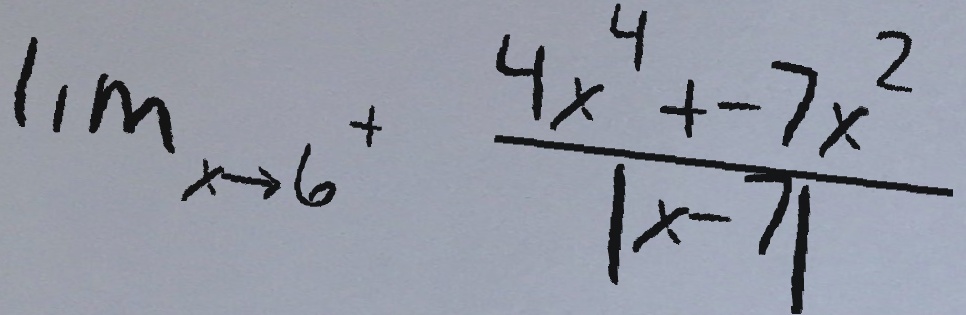 lim_{x→6^+} \frac{4x^4 + -7x^2}{|x-7|}